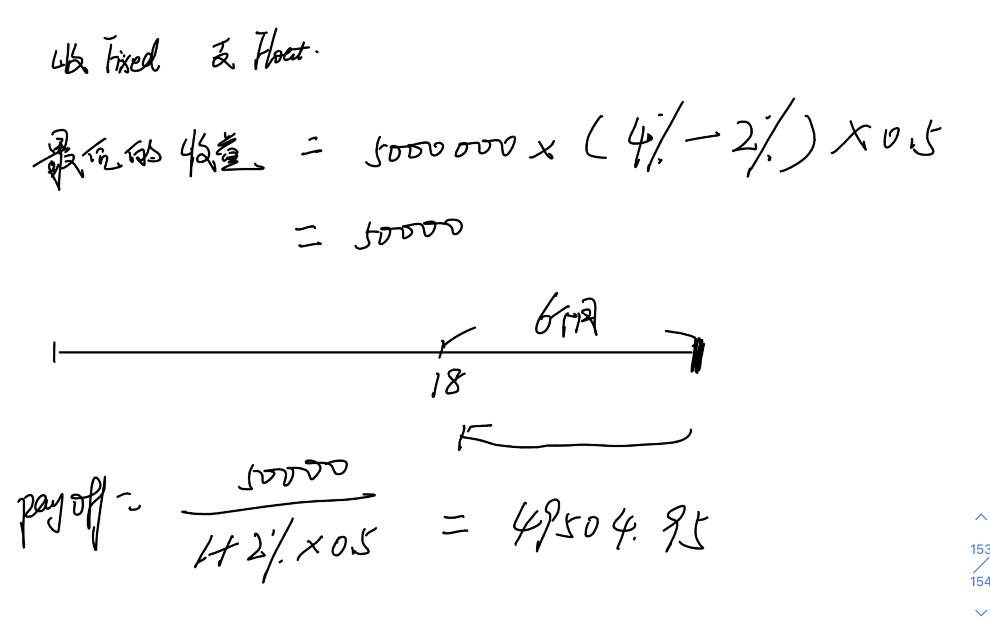 收 Fixed 支 Float.
最后的收益 = 5000000 × (4% - 2%) × 0.5
= 50000
6个月
18
payoff = 50000 / 1+2%×0.5 = 49504.95
153
154